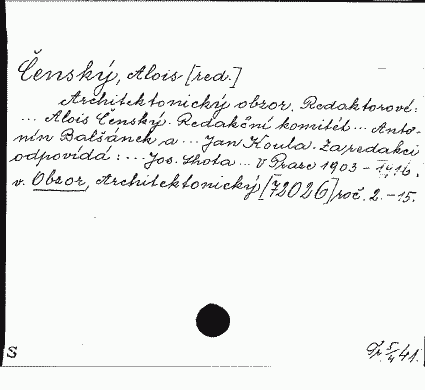 Čenský, Alois [red.]
Architektonický obzor. Redaktorové:
... Alois Čenský. Redakční komitét ... Anto-
nín Balšánek a ... Jan Koula. Za redakci
odpovídá: ... Jos. Lhota ... V Praze 1903 - 1916.
v. Obzor, Architektonický [72026] roč. 2. - 15.
S